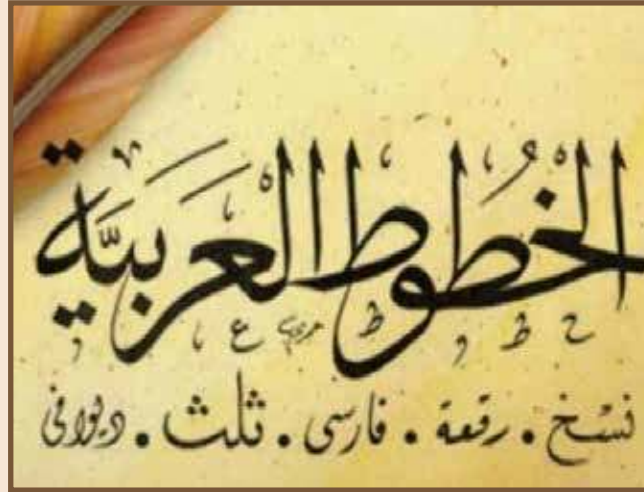 الخُطُوط العَرَبيَّة
نسخ . رقعة . فارسى . ثلث . ديوانى